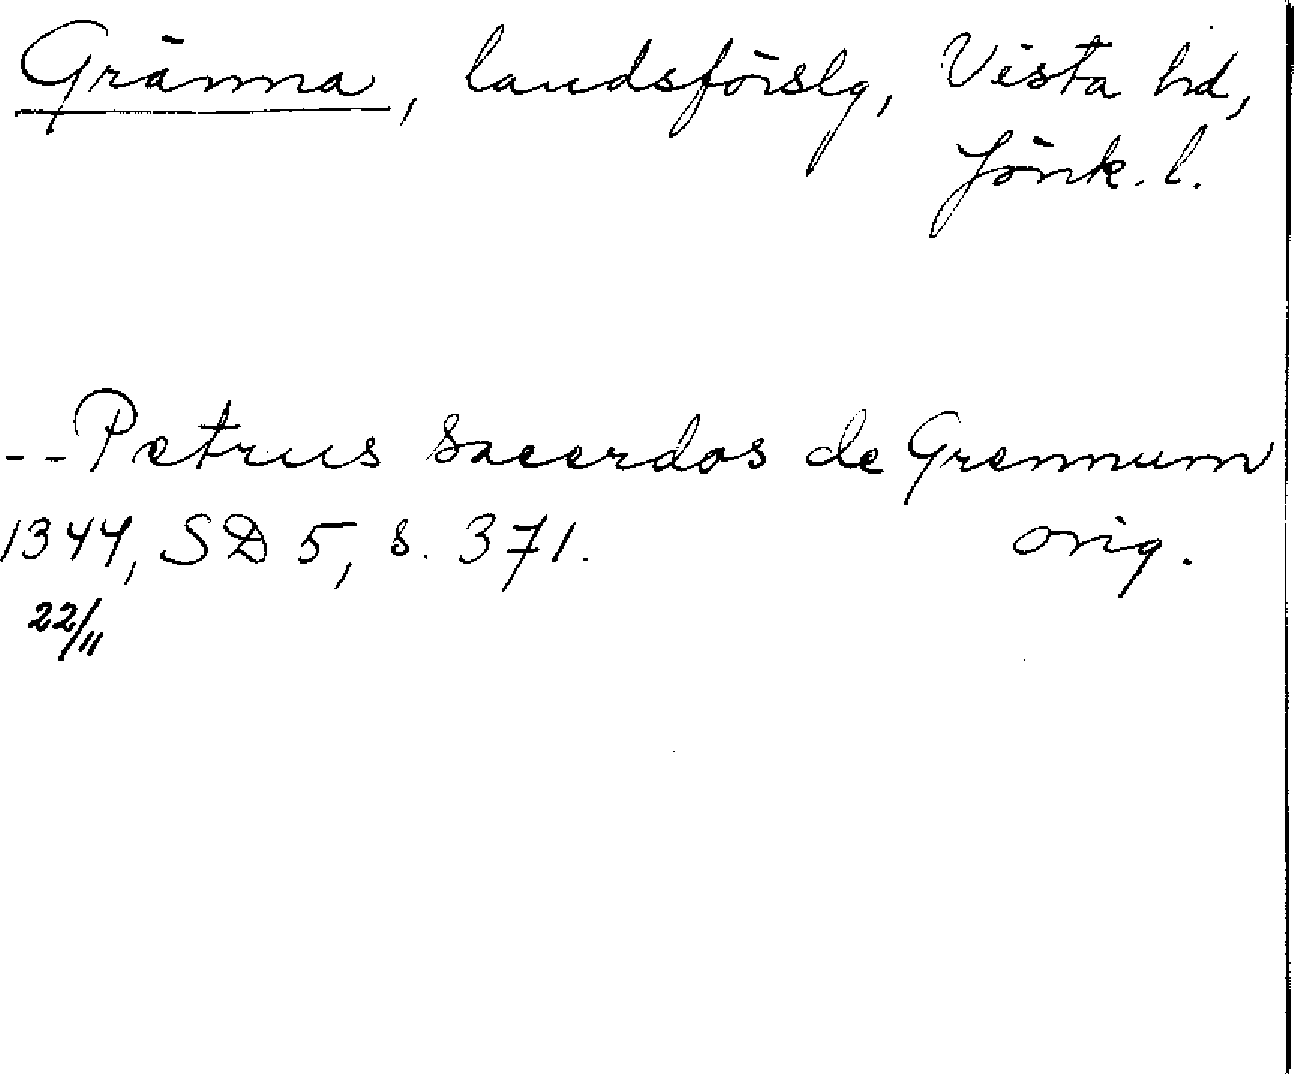 Gränna, landsförslg, Vista hd,
Jönk. l.
--Petrus sacerdos de Grennum
1344, SD 5, s. 371. orig.
22/11